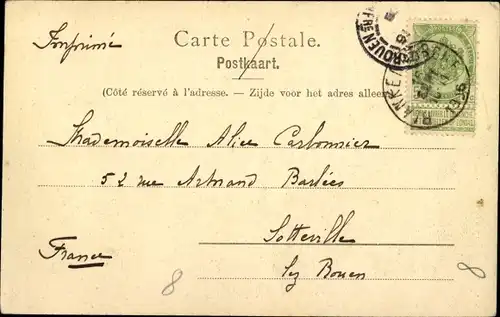 Imprimé
Carte Postale.
Postkaart.
(Côté réservé à l'adresse. – Zijde voor het adres alleen
Mademoiselle Alice Carbonnier
52 rue Armand Barbées
Sotteville
lez Rouen
France
8
8
ROUEN
BLANKEN